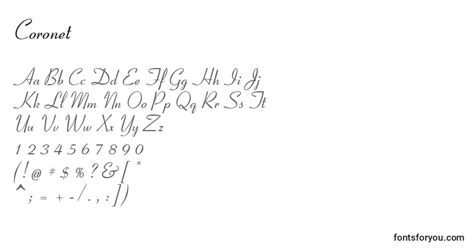 Coronet
Aa Bb Cc Dd Ee Ff Gg Hh Ii Jj
Kk Ll Mm Nn Oo Pp Qq Rr Ss Tt
Uu Vv Ww Xx Yy Zz
1 2 3 4 5 6 7 8 9 0
(! @ * $ % ? & [ "
^ ; = + - / . , : ] )
fontsforyou.com